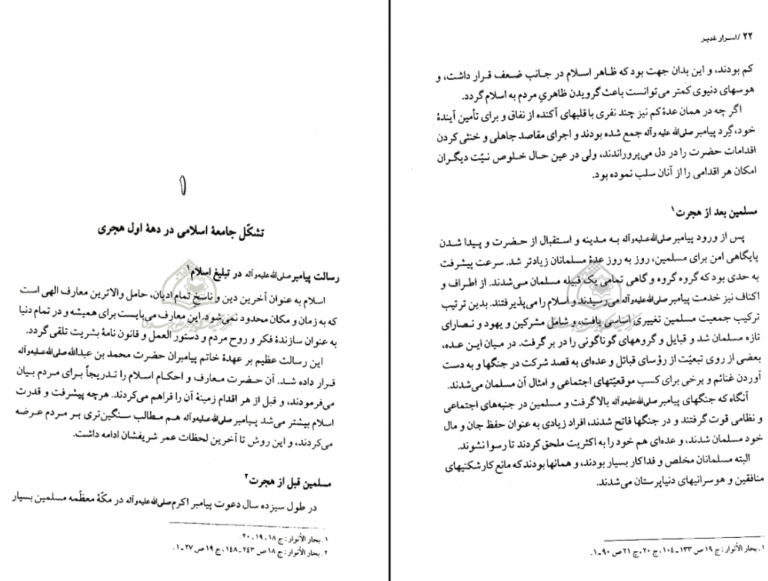 ۱
تشکّل جامعهٔ اسلامی در دههٔ اول هجری
رسالت پیامبر صلی‌الله‌علیه‌وآله در تبلیغ اسلام۱
اسلام به عنوان آخرین دین و ناسخ تمام ادیان، حامل والاترین معارف الهی است
که به زمان و مکان محدود نمی‌شود. این معارف می‌بایست برای همیشه و در تمام دنیا
به عنوان سازندهٔ فکر و روح مردم و دستور العمل و قانون نامهٔ بشریت تلقی گردد.
این رسالت عظیم بر عهدهٔ خاتم پیامبران حضرت محمد بن عبدالله صلی‌الله‌علیه‌وآله
قرار داده شد. آن حضرت معارف و احکام اسلام را تدریجاً برای مردم بیان
می‌فرمودند، و قبل از هر اقدام زمینهٔ آن را فراهم می‌کردند. هرچه پیشرفت و قدرت
اسلام بیشتر می‌شد پیامبر صلی‌الله‌علیه‌وآله هم مطالب سنگین‌تری بر مردم عرضه
می‌کردند، و این روش تا آخرین لحظات عمر شریفشان ادامه داشت.
مسلمین قبل از هجرت۲
در طول سیزده سال دعوت پیامبر اکرم صلی‌الله‌علیه‌وآله در مکّهٔ معظّمه مسلمین بسیار
۱. بحار الأنوار: ج ۱۸، ۱۹، ۲۰.
۲. بحار الأنوار: ج ۱۸ ص ۲۴۳ـ۱۴۸، ج ۱۹ ص ۲۷ـ۱.
۲۲ / اسرار غدیر
کم بودند، و این بدان جهت بود که ظاهر اسلام در جانب ضعف قرار داشت، و
هوسهای دنیوی کمتر می‌توانست باعث گرویدن ظاهریِ مردم به اسلام گردد.
اگر چه در همان عدهٔ کم نیز چند نفری با قلبهای آکنده از نفاق و برای تأمین آیندهٔ
خود، گِرد پیامبر صلی‌الله علیه وآله جمع شده بودند و اجرای مقاصد جاهلی و خنثی کردن
اقدامات حضرت را در دل می‌پروراندند، ولی در عین حال خلوص نیّت دیگران
امکان هر اقدامی را از آنان سلب نموده بود.
مسلمین بعد از هجرت۱
پس از ورود پیامبر صلی‌الله‌علیه‌وآله به مدینه و استقبال از حضرت و پیدا شدن
پایگاهی امن برای مسلمین، روز به روز عدهٔ مسلمانان زیادتر شد. سرعت پیشرفت
به حدی بود که گروه گروه و گاهی تمامی یک قبیله مسلمان می‌شدند. از اطراف و
اکناف نیز خدمت پیامبر صلی‌الله‌علیه‌وآله می‌رسیدند و اسلام را می‌پذیرفتند. بدین ترتیب
ترکیب جمعیت مسلمین تغییری اساسی یافت، و شامل مشرکین و یهود و نصارای
تازه مسلمان شد و قبایل و گروههای گوناگونی را در بر گرفت. در میان این عده،
بعضی از روی تبعیّت از رؤسای قبائل و عده‌ای به قصد شرکت در جنگها و به دست
آوردن غنائم و برخی برای کسب موقعیّتهای اجتماعی و امثال آن مسلمان می‌شدند.
آنگاه که جنگهای پیامبر صلی‌الله‌علیه‌وآله بالا گرفت و مسلمین در جنبه‌های اجتماعی
و نظامی قوت گرفتند و در جنگها فاتح شدند، افراد زیادی به عنوان حفظ جان و مال
خود مسلمان شدند، و عده‌ای هم خود را به اکثریت ملحق کردند تا رسوا نشوند.
البته مسلمانان مخلص و فداکار بسیار بودند، و همانها بودند که مانع کارشکنیهای
منافقین و هوسرانیهای دنیاپرستان می‌شدند.
۱. بحار الأنوار: ج ۱۹ ص ۱۳۳ـ۱۰۴، ج ۲۰، ج ۲۱ ص ۹۰ـ۱.